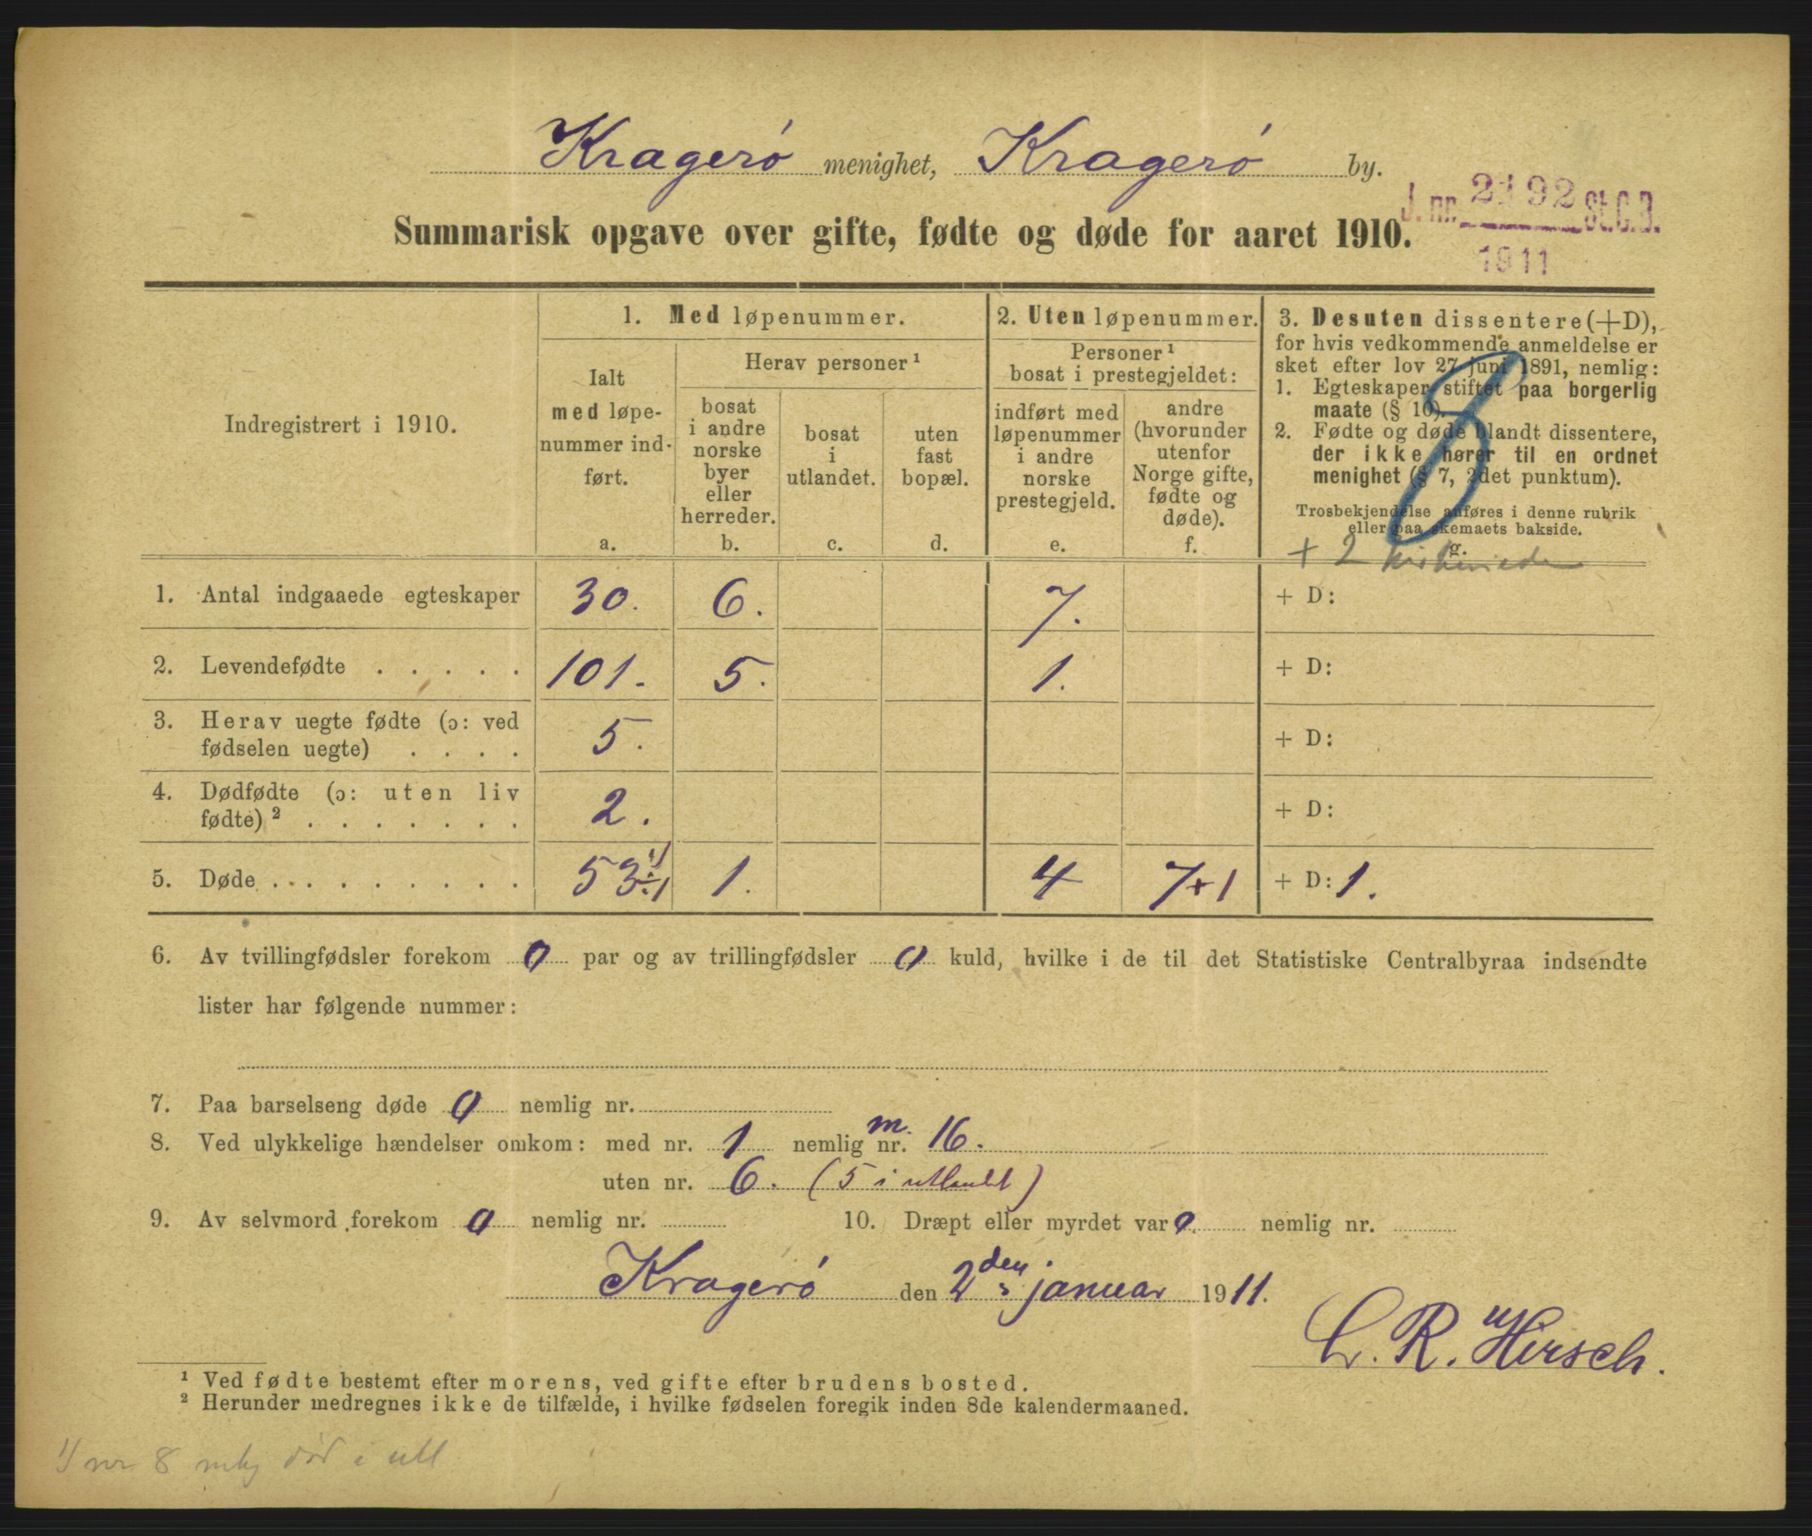 Kragerø menighet, Kragerø by.
J. nr. 2192 St.C.B.
1911
Summarisk opgave over gifte, fødte og døde for aaret 1910.
Indregistrert i 1910.
1. Med løpenummer.
Ialt
med løpe-
nummer ind-
ført.
a.
Herav personer ¹
bosat
i andre
norske
byer
eller
herreder.
b.
bosat
i
utlandet.
c.
uten
fast
bopæl.
d.
2. Uten løpenummer.
Personer ¹
bosat i prestegjeldet:
indført med
løpenummer
i andre
norske
prestegjeld.
e.
andre
(hvorunder
utenfor
Norge gifte,
fødte og
døde).
f.
3. Desuten dissentere (+D),
for hvis vedkommende anmeldelse er
sket efter lov 27 juni 1891, nemlig:
1. Egteskaper stiftet paa borgerlig
maate (§ 10).
2. Fødte og døde blandt dissentere,
der ikke hører til en ordnet
menighet (§ 7, 2det punktum).
Trosbekjendelse anføres i denne rubrik
eller paa skemaets bakside.
g.
8
+ 2
1. Antal indgaaede egteskaper 30. 6. 7. + D:
2. Levendefødte . . . . . 101. 5. 1. + D:
3. Herav uegte fødte (ɔ: ved
fødselen uegte) . . . . 5. + D:
4. Dødfødte (ɔ: uten liv
fødte) ² . . . . . . . 2. + D:
5. Døde . . . . . . . . . 53 ¹/ ÷1 1. 4 7+1 + D: 1.
6. Av tvillingfødsler forekom 0 par og av trillingfødsler 0 kuld, hvilke i de til det Statistiske Centralbyraa indsendte
lister har følgende nummer:
7. Paa barselseng døde 0 nemlig nr.
8. Ved ulykkelige hændelser omkom: med nr. 1 nemlig nr. m. 16.
uten nr. 6. (5 i utlandet)
9. Av selvmord forekom 0 nemlig nr. 10. Dræpt eller myrdet var 0 nemlig nr.
Kragerø den 2den januar 1911.
C. R. Hirsch.
¹ Ved fødte bestemt efter morens, ved gifte efter brudens bosted.
² Herunder medregnes ikke de tilfælde, i hvilke fødselen foregik inden 8de kalendermaaned.
1/ nr 8 mk død i utl